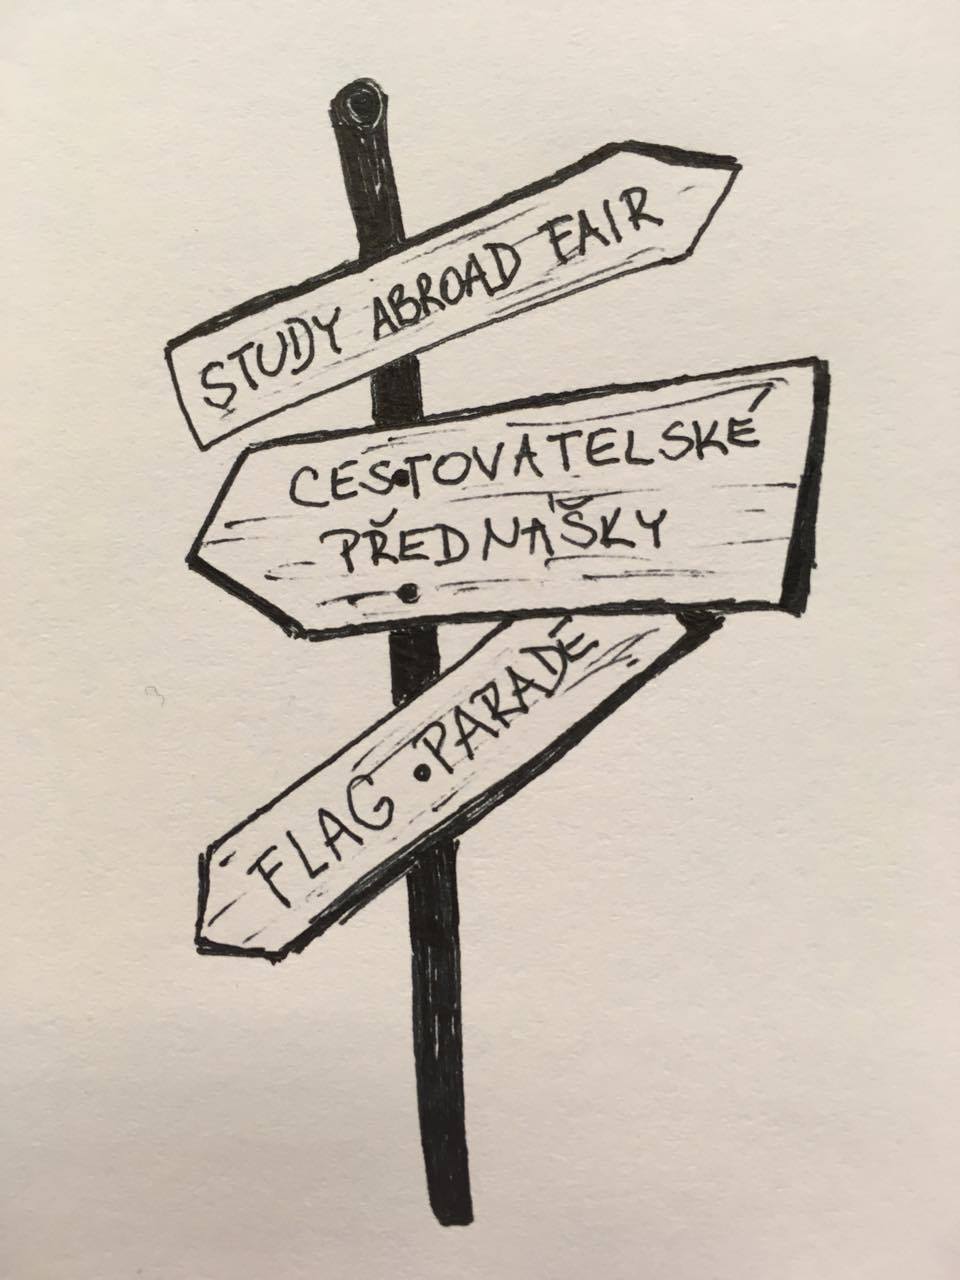 STUDY ABROAD FAIR
CESTOVATELSKÉ
PŘEDNÁŠKY
FLAG PARADÉ